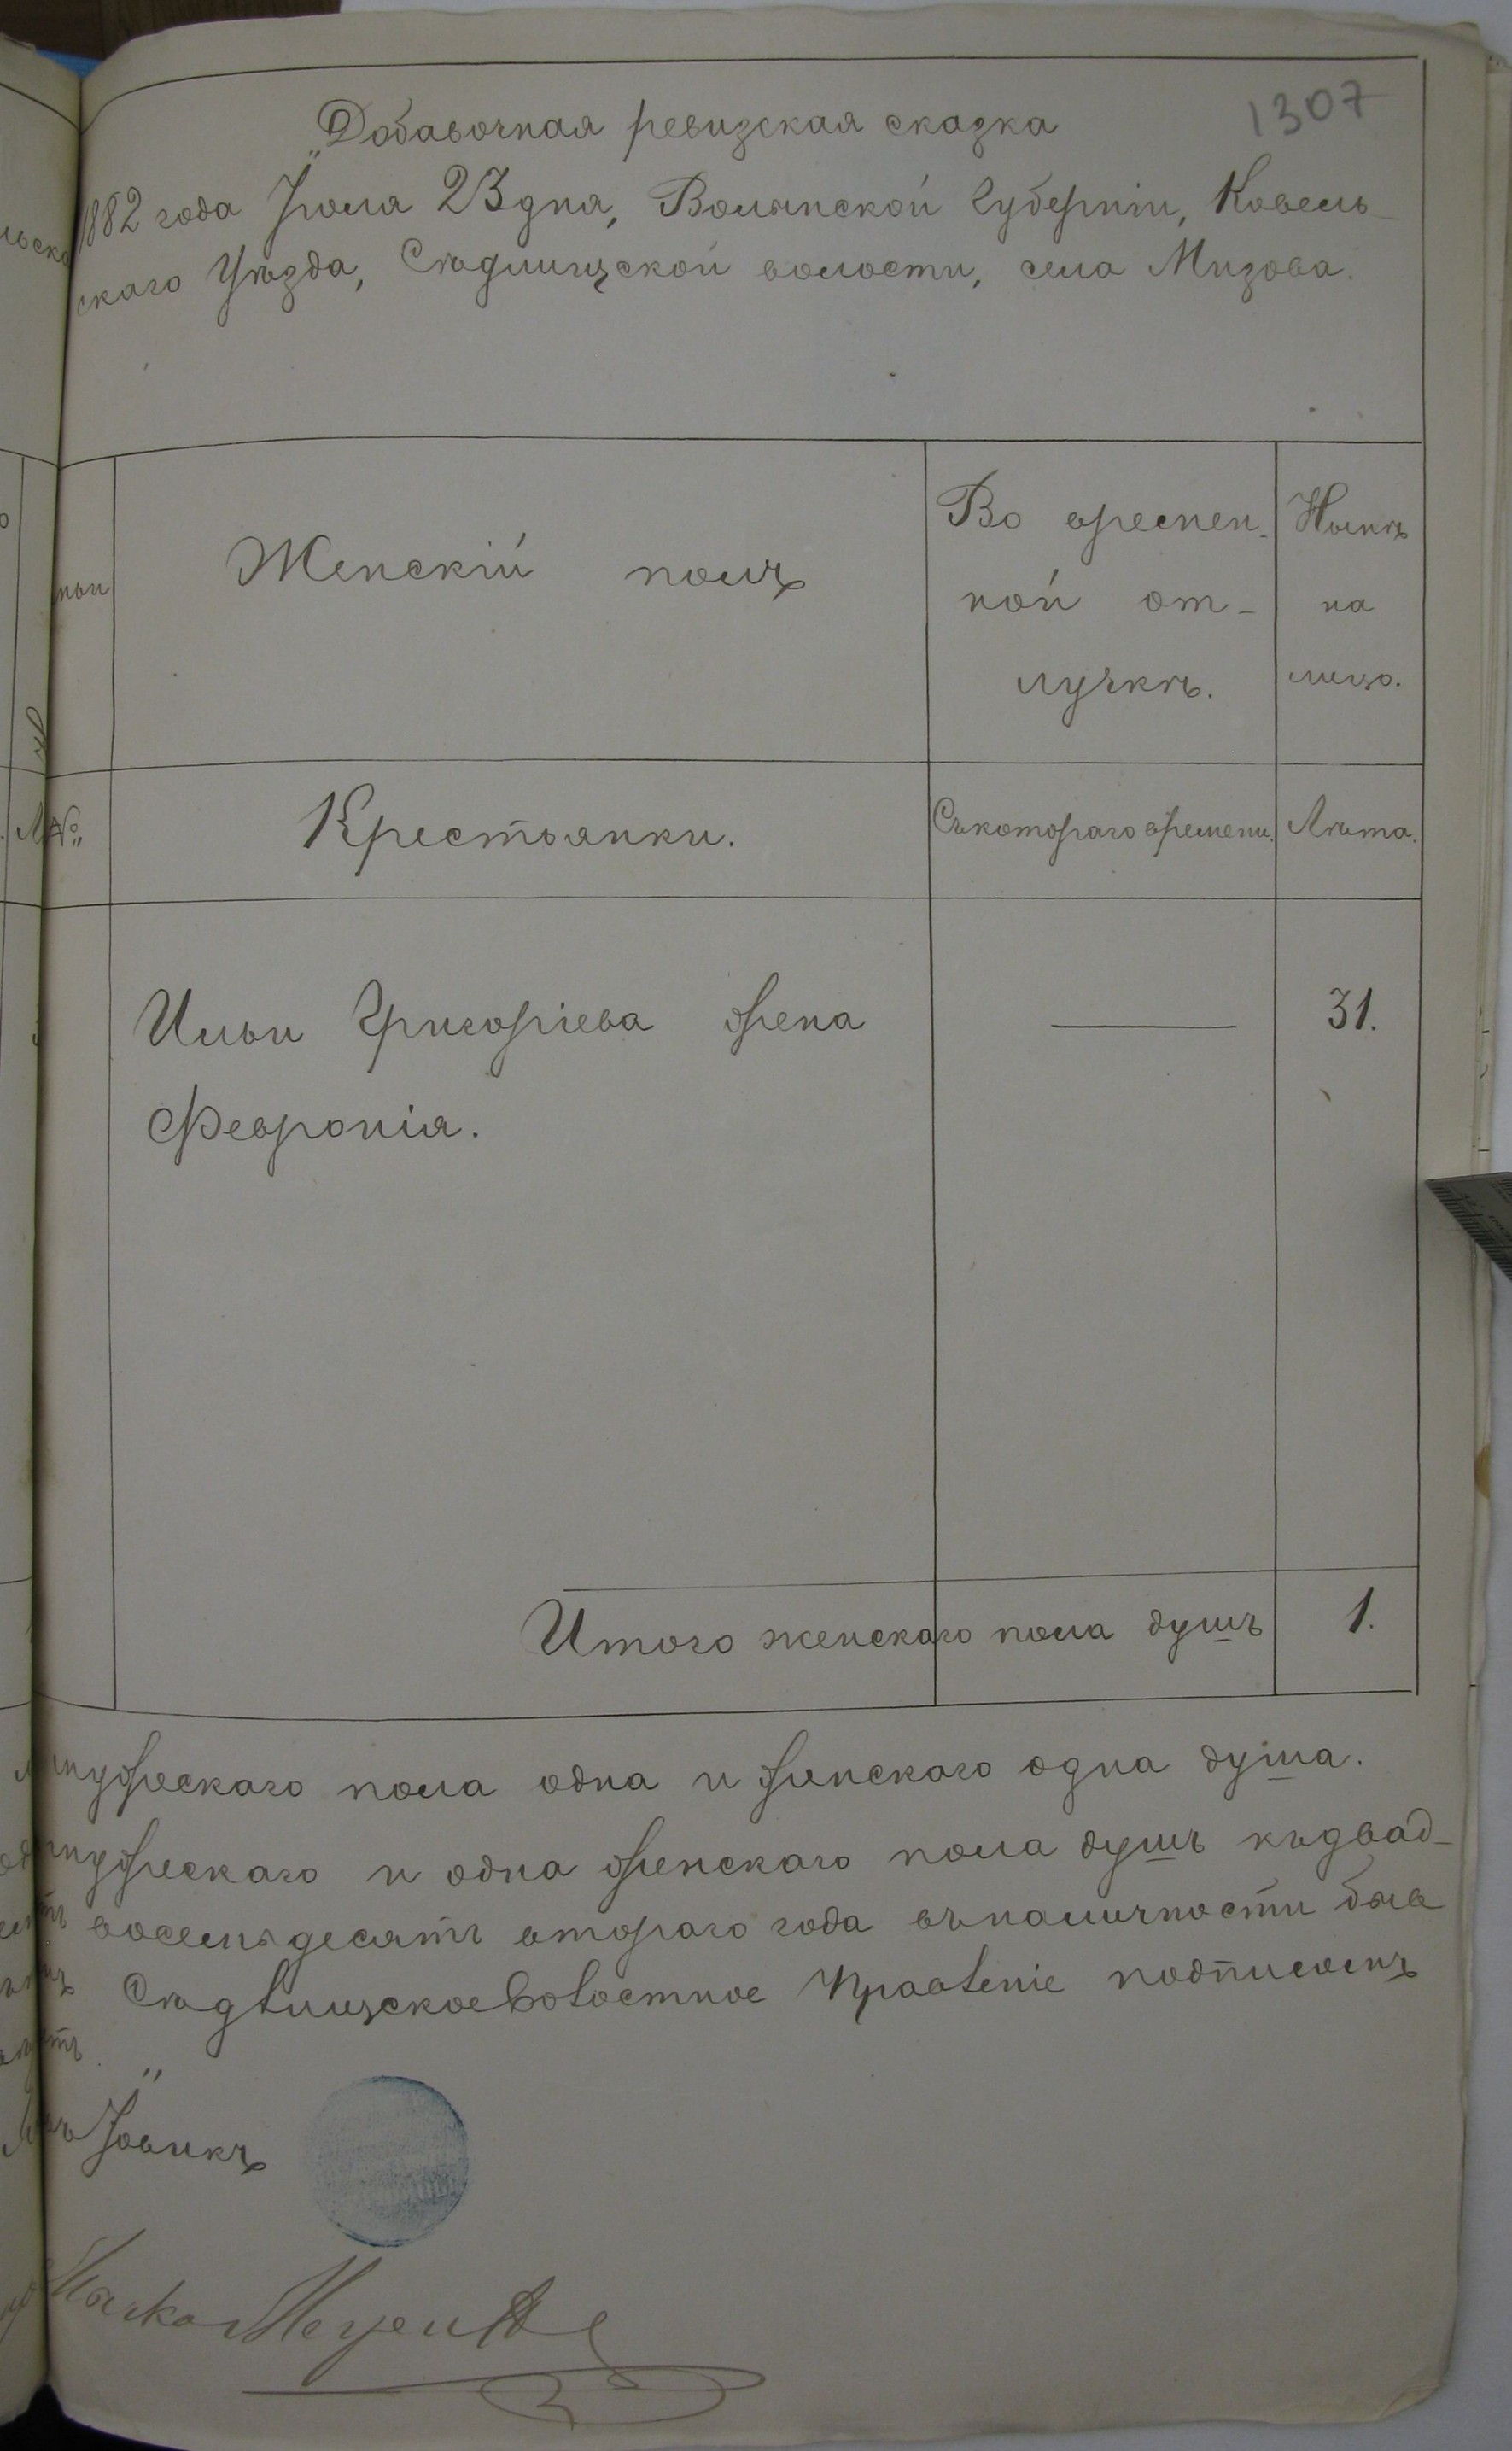 1307
„Добавочная ревизская сказка
1882 года Іюля 23 дня, Волынской Губерніи, Ковель-
скаго Уѣзда, Сѣдлищской волости, села Мизова.
Женскій полъ
Во времен-
ной от-
лучкѣ.
Нынѣ
на
лицо.
№
Крестьянки.
Съ котораго времени.
Лѣта.
Ильи Григоріева жена
Февронія.
31.
Итого женскаго пола душъ
1.
мужескаго пола одна и женскаго одна душа.
мужескаго и одна женскаго пола душъ къ двад-
восемьдесятъ втораго года въ наличности быв
Сѣдлищское Волостное Правленіе подписомъ
Іовикъ